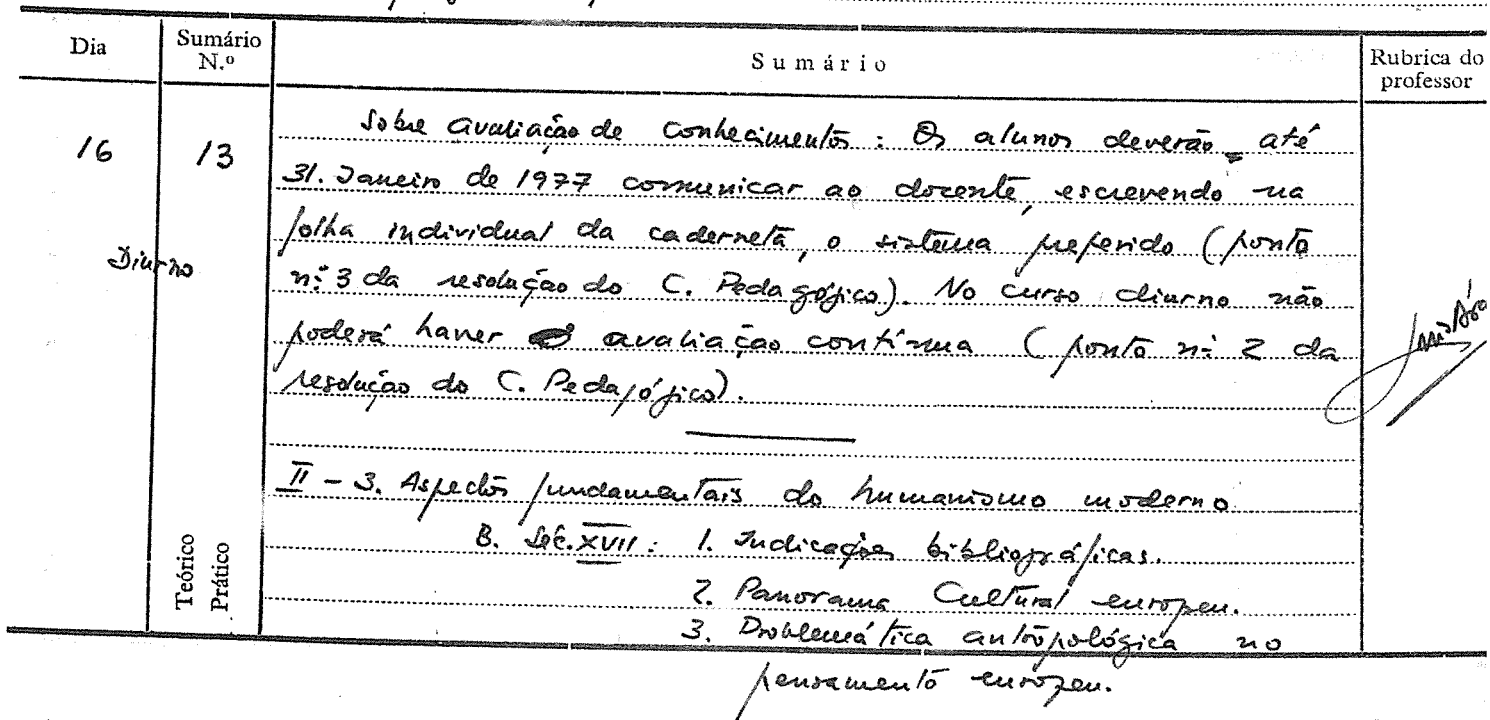 Dia
Sumário N.º
Sumário
Rubrica do professor
16
13
Diurno
Sobre avaliação de conhecimentos : Os alunos deverão até
31. Janeiro de 1977 comunicar ao docente, escrevendo na
folha individual da caderneta, o sistema preferido (ponto
nº 3 da resolução do C. Pedagógico). No curso diurno não
poderá haver avaliação contínua (ponto nº 2 da
resolução do C. Pedagógico).
II - 3. Aspectos fundamentais do humanismo moderno
B. Séc. XVII : 1. Indicações bibliográficas.
2. Panorama Cultural europeu.
3. Problemática antropológica no
pensamento europeu.
Teórico
Prático